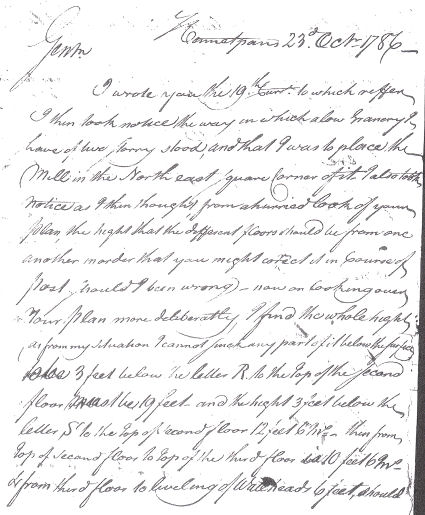 Kennetpans 23d. Octr. 1786
Gentn
I wrote you the 19th Curt. to which reffer
I then took notice the way in which a low Granery I
have of two storry stood, and that I was to place the
Mill in the North east square Corner of it. I also took
notice as I then thought from a hurried look of your
plan the hight that the different floors should be from one
another in order that you might corect it in Course of
Post, should I been wrong) - now on looking over
Your plan more deliberatly, I find the whole hight,
as from my situation I cannot sink any part of it below the surface
3 feet below the letter R. to the top of the Second
floor must be 19 feet - and the hight 3 feet below the
letter S to the top of second floor 12 feet 6 Ins. - then from
top of second floor to top of the third floor 10 feet 6 Ins.
& from third floor to leveling of Wallheads 6 feet, should